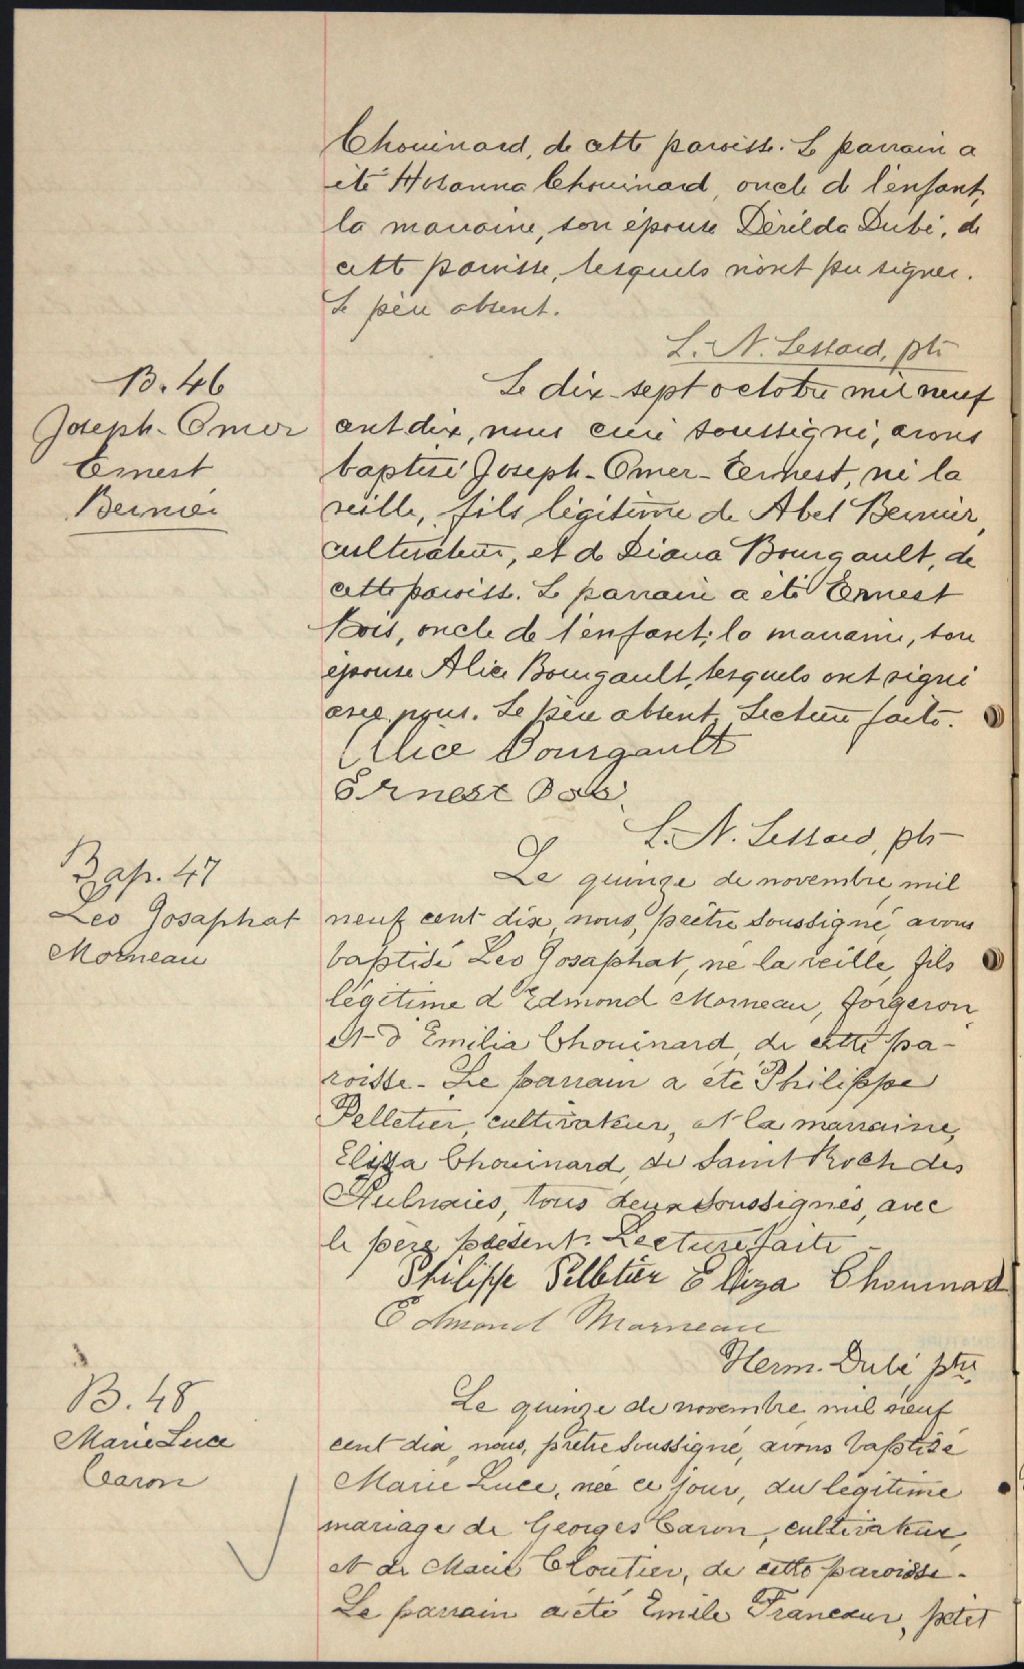 Chouinard, de cette paroisse. Le parrain a
été Hosanna Chouinard, oncle de l'enfant,
la marraine, son épouse Dérilda Dubé, de
cette paroisse, lesquels n'ont pu signer.
Le père absent.
L.-N. Lessard, ptr
B. 46
Joseph-Omer
Ernest
Bernier
Le dix-sept octobre mil neuf
cent dix, nous curé soussigné, avons
baptisé Joseph-Omer-Ernest, né la
veille, fils légitime de Abel Bernier,
cultivateur, et de Diana Bourgault, de
cette paroisse. Le parrain a été Ernest
Bois, oncle de l'enfant; la marraine, son
épouse Alice Bourgault, lesquels ont signé
avec nous. Le père absent. Lecture faite.
Alice Bourgault
Ernest Bois
L.-N. Lessard, ptr
Bap. 47
Leo Josaphat
Morneau
Le quinze de novembre, mil
neuf cent dix, nous, prêtre soussigné, avons
baptisé Leo Josaphat, né la veille, fils
légitime d'Edmond Morneau, forgeron,
et d'Emilia Chouinard, de cette pa-
roisse. Le parrain a été Philippe
Pelletier, cultivateur, et la marraine,
Eliza Chouinard, de Saint Roch des
Aulnaies, tous deux soussignés, avec
le père présent. Lecture faite.
Philippe Pelletier Eliza Chouinard
Edmond Morneau
Herm. Dubé ptre.
B. 48
Marie Luce
Caron
Le quinze de novembre mil neuf
cent dix, nous, prêtre soussigné, avons baptisé
Marie Luce, née ce jour, du légitime
mariage de Georges Caron, cultivateur,
et de Marie Cloutier, de cette paroisse.
Le parrain a été Emile Francoeur, petit